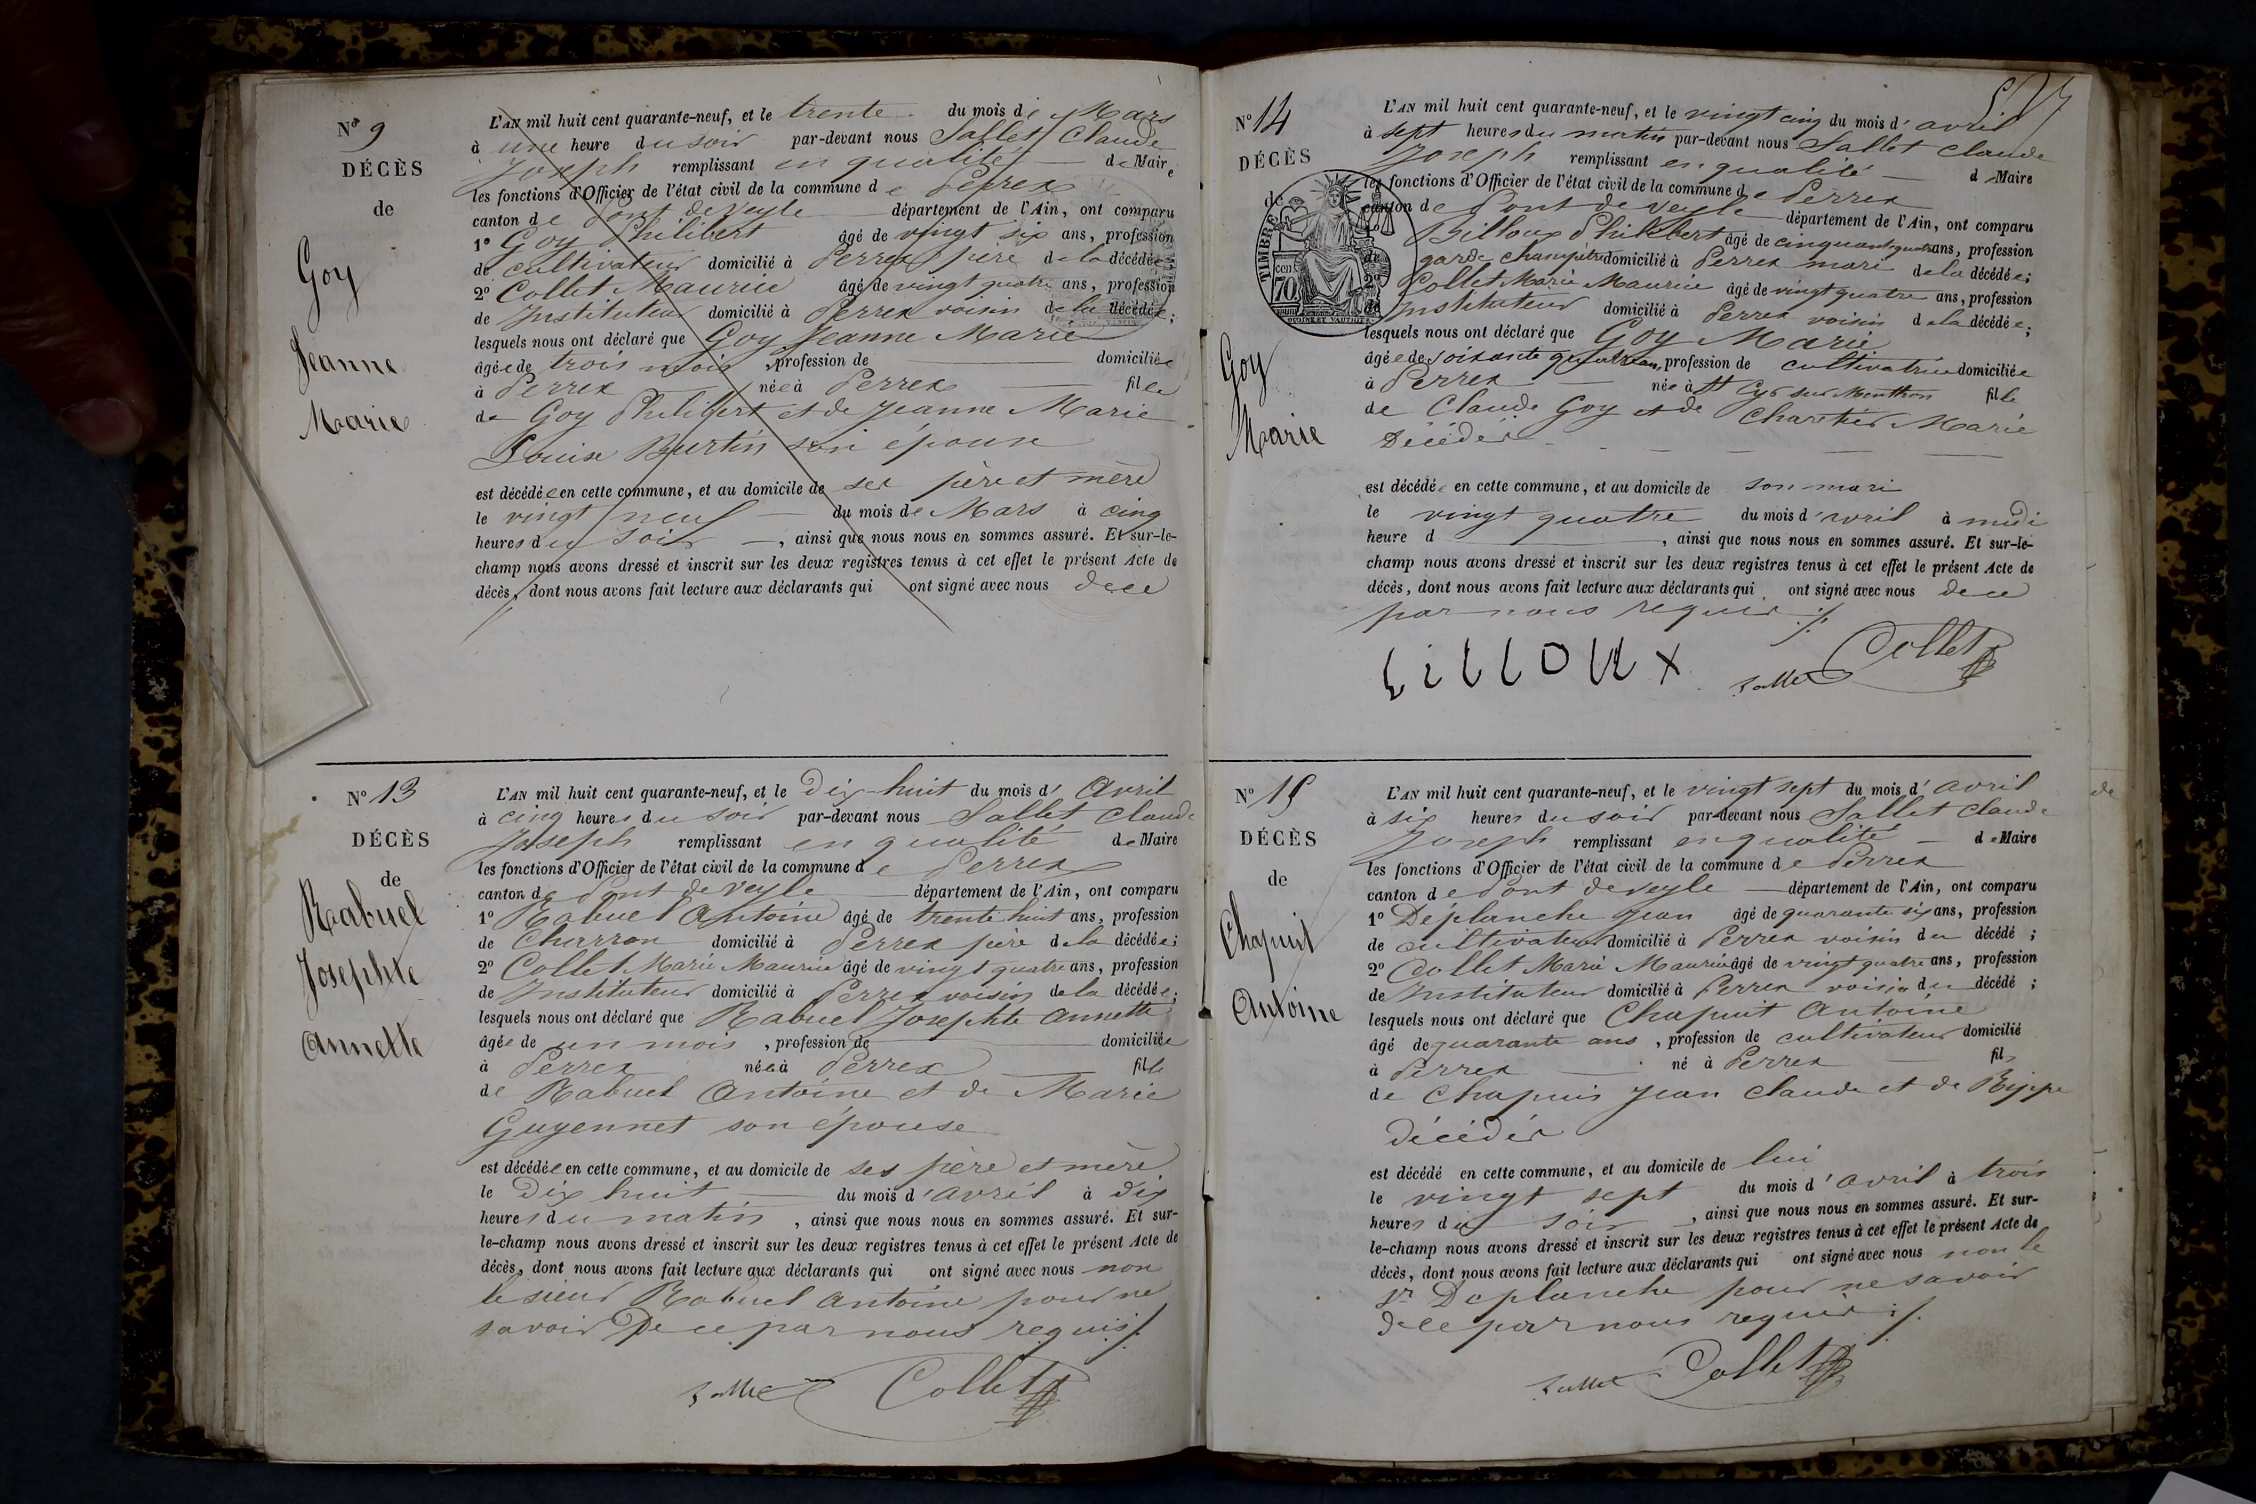 N° 9
DÉCÈS
de
Goy
Jeanne
Marie
L'AN mil huit cent quarante-neuf, et le trente du mois de Mars
à une heure du soir par-devant nous Sallet Claude
Joseph remplissant en qualité de Maire
les fonctions d'Officier de l'état civil de la commune de Perrex
canton de Pont de Veyle département de l'Ain, ont comparu
1° Goy Philibert âgé de vingt six ans, profession
de cultivateur domicilié à Perrex père de la décédée
2° Collet Maurice âgé de vingt quatre ans, profession
de Instituteur domicilié à Perrex voisin de la décédée;
lesquels nous ont déclaré que Goy Jeanne Marie
âgée de trois mois, profession de domiciliée
à Perrex née à Perrex fille
de Goy Philibert et de Jeanne Marie
Louise Burtin son épouse
est décédée en cette commune, et au domicile de ses père et mère
le vingt neuf du mois de Mars à cinq
heures du soir, ainsi que nous nous en sommes assuré. Et sur-le-
champ nous avons dressé et inscrit sur les deux registres tenus à cet effet le présent Acte de
décès, dont nous avons fait lecture aux déclarants qui ont signé avec nous de ce
N° 13
DÉCÈS
de
Rabuel
Josephte
Annette
L'AN mil huit cent quarante-neuf, et le Dix-huit du mois d'Avril
à cinq heures du soir par-devant nous Sallet Claude
Joseph remplissant en qualité de Maire
les fonctions d'Officier de l'état civil de la commune de Perrex
canton de Pont de Veyle département de l'Ain, ont comparu
1° Rabuel Antoine âgé de trente huit ans, profession
de Charron domicilié à Perrex père de la décédée;
2° Collet Marie Maurice âgé de vingt quatre ans, profession
de Instituteur domicilié à Perrex voisin de la décédée;
lesquels nous ont déclaré que Rabuel Josephte Annette
âgée de un mois, profession de domiciliée
à Perrex née à Perrex fille
de Rabuel Antoine et de Marie
Guyennet son épouse
est décédée en cette commune, et au domicile de ses père et mère
le Dix huit du mois d'avril à dix
heures du matin, ainsi que nous nous en sommes assuré. Et sur-
le-champ nous avons dressé et inscrit sur les deux registres tenus à cet effet le présent Acte de
décès, dont nous avons fait lecture aux déclarants qui ont signé avec nous non
le sieur Rabuel Antoine pour ne
savoir De ce par nous requis ./.
Sallet Collet
N° 14
DÉCÈS
de
TIMBRE
70
Goy
Marie
L'AN mil huit cent quarante-neuf, et le vingt cinq du mois d'avril
à sept heures du matin par-devant nous Sallet Claude
Joseph remplissant en qualité de Maire
les fonctions d'Officier de l'état civil de la commune de Perrex
canton de Pont de Veyle département de l'Ain, ont comparu
Billoux Philibert âgé de cinquante quatre ans, profession
de garde champêtre domicilié à Perrex mari de la décédée;
2° Collet Marie Maurice âgé de vingt quatre ans, profession
de Instituteur domicilié à Perrex voisin de la décédée;
lesquels nous ont déclaré que Goy Marie
âgée de soixante quatre ans, profession de cultivatrice domiciliée
à Perrex née à St Cyr sur Menthon fille
de Claude Goy et de Charetier Marie
Décédés
est décédée en cette commune, et au domicile de son mari
le vingt quatre du mois d'avril à midi
heure d , ainsi que nous nous en sommes assuré. Et sur-le-
champ nous avons dressé et inscrit sur les deux registres tenus à cet effet le présent Acte de
décès, dont nous avons fait lecture aux déclarants qui ont signé avec nous de ce
par nous requis ./.
billoux Sallet Collet
N° 15
DÉCÈS
de
Chapuit
Antoine
L'AN mil huit cent quarante-neuf, et le vingt sept du mois d'avril
à six heures du soir par-devant nous Sallet Claude
Joseph remplissant en qualité de Maire
les fonctions d'Officier de l'état civil de la commune de Perrex
canton de Pont de Veyle département de l'Ain, ont comparu
1° Déplanche Jean âgé de quarante six ans, profession
de cultivateur domicilié à Perrex voisin du décédé;
2° Collet Marie Maurice âgé de vingt quatre ans, profession
de Instituteur domicilié à Perrex voisin du décédé;
lesquels nous ont déclaré que Chapuit Antoine
âgé de quarante ans, profession de cultivateur domicilié
à Perrex né à Perrex fils
de Chapuis Jean Claude et de Rippe
Décédés
est décédé en cette commune, et au domicile de lui
le vingt sept du mois d'avril à trois
heures du soir, ainsi que nous nous en sommes assuré. Et sur-
le-champ nous avons dressé et inscrit sur les deux registres tenus à cet effet le présent Acte de
décès, dont nous avons fait lecture aux déclarants qui ont signé avec nous non le
Sr Deplanche pour ne savoir
de ce par nous requis ./.
Sallet Collet